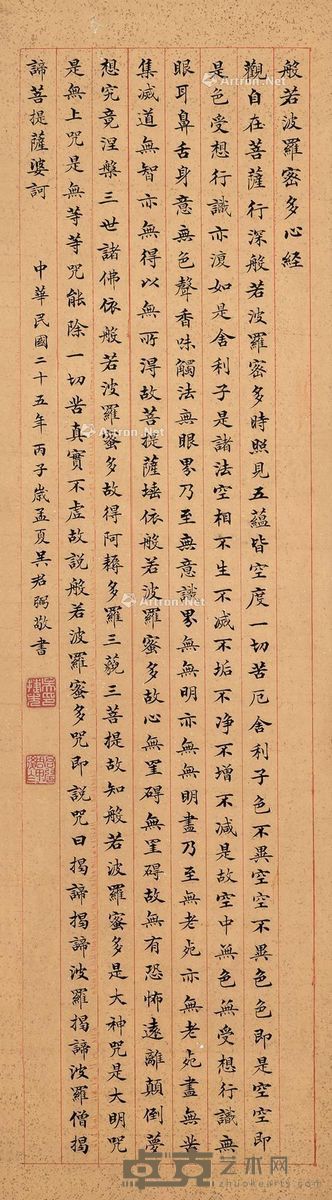 般若波羅密多心経
觀自在菩薩行深般若波羅密多時照見五蘊皆空度一切苦厄舍利子色不異空空不異色色即是空空即
是色受想行識亦復如是舍利子是諸法空相不生不滅不垢不净不增不減是故空中無色無受想行識無
眼耳鼻舌身意無色聲香味觸法無眼界乃至無意識界無無明亦無無明盡乃至無老死亦無老死盡無苦
集滅道無智亦無得以無所得故菩提薩埵依般若波羅蜜多故心無罣碍無罣碍故無有恐怖遠離顛倒夢
想究竟涅槃三世諸佛依般若波羅蜜多故得阿耨多羅三藐三菩提故知般若波羅蜜多是大神咒是大明咒
是無上咒是無等等咒能除一切苦真實不虛故説般若波羅蜜多咒即説咒曰揭諦揭諦波羅揭諦波羅僧揭
諦菩提薩婆訶
中華民國二十五年丙子歲孟夏吳君弼敬書
Artron.Net
Artron.Net
Artron.Net
Artron.Net
卓克艺术网
zhuokearts.com